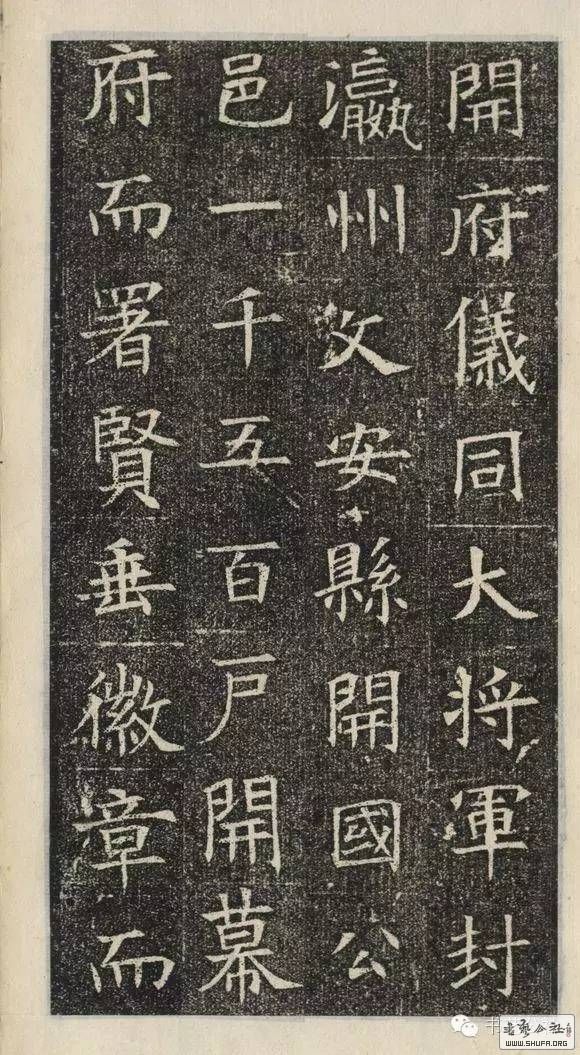 開府儀同大将軍封
瀛州文安縣開國公
邑一千五百戸開幕
府而署賢垂徽章而
WWW.SHUFA.ORG